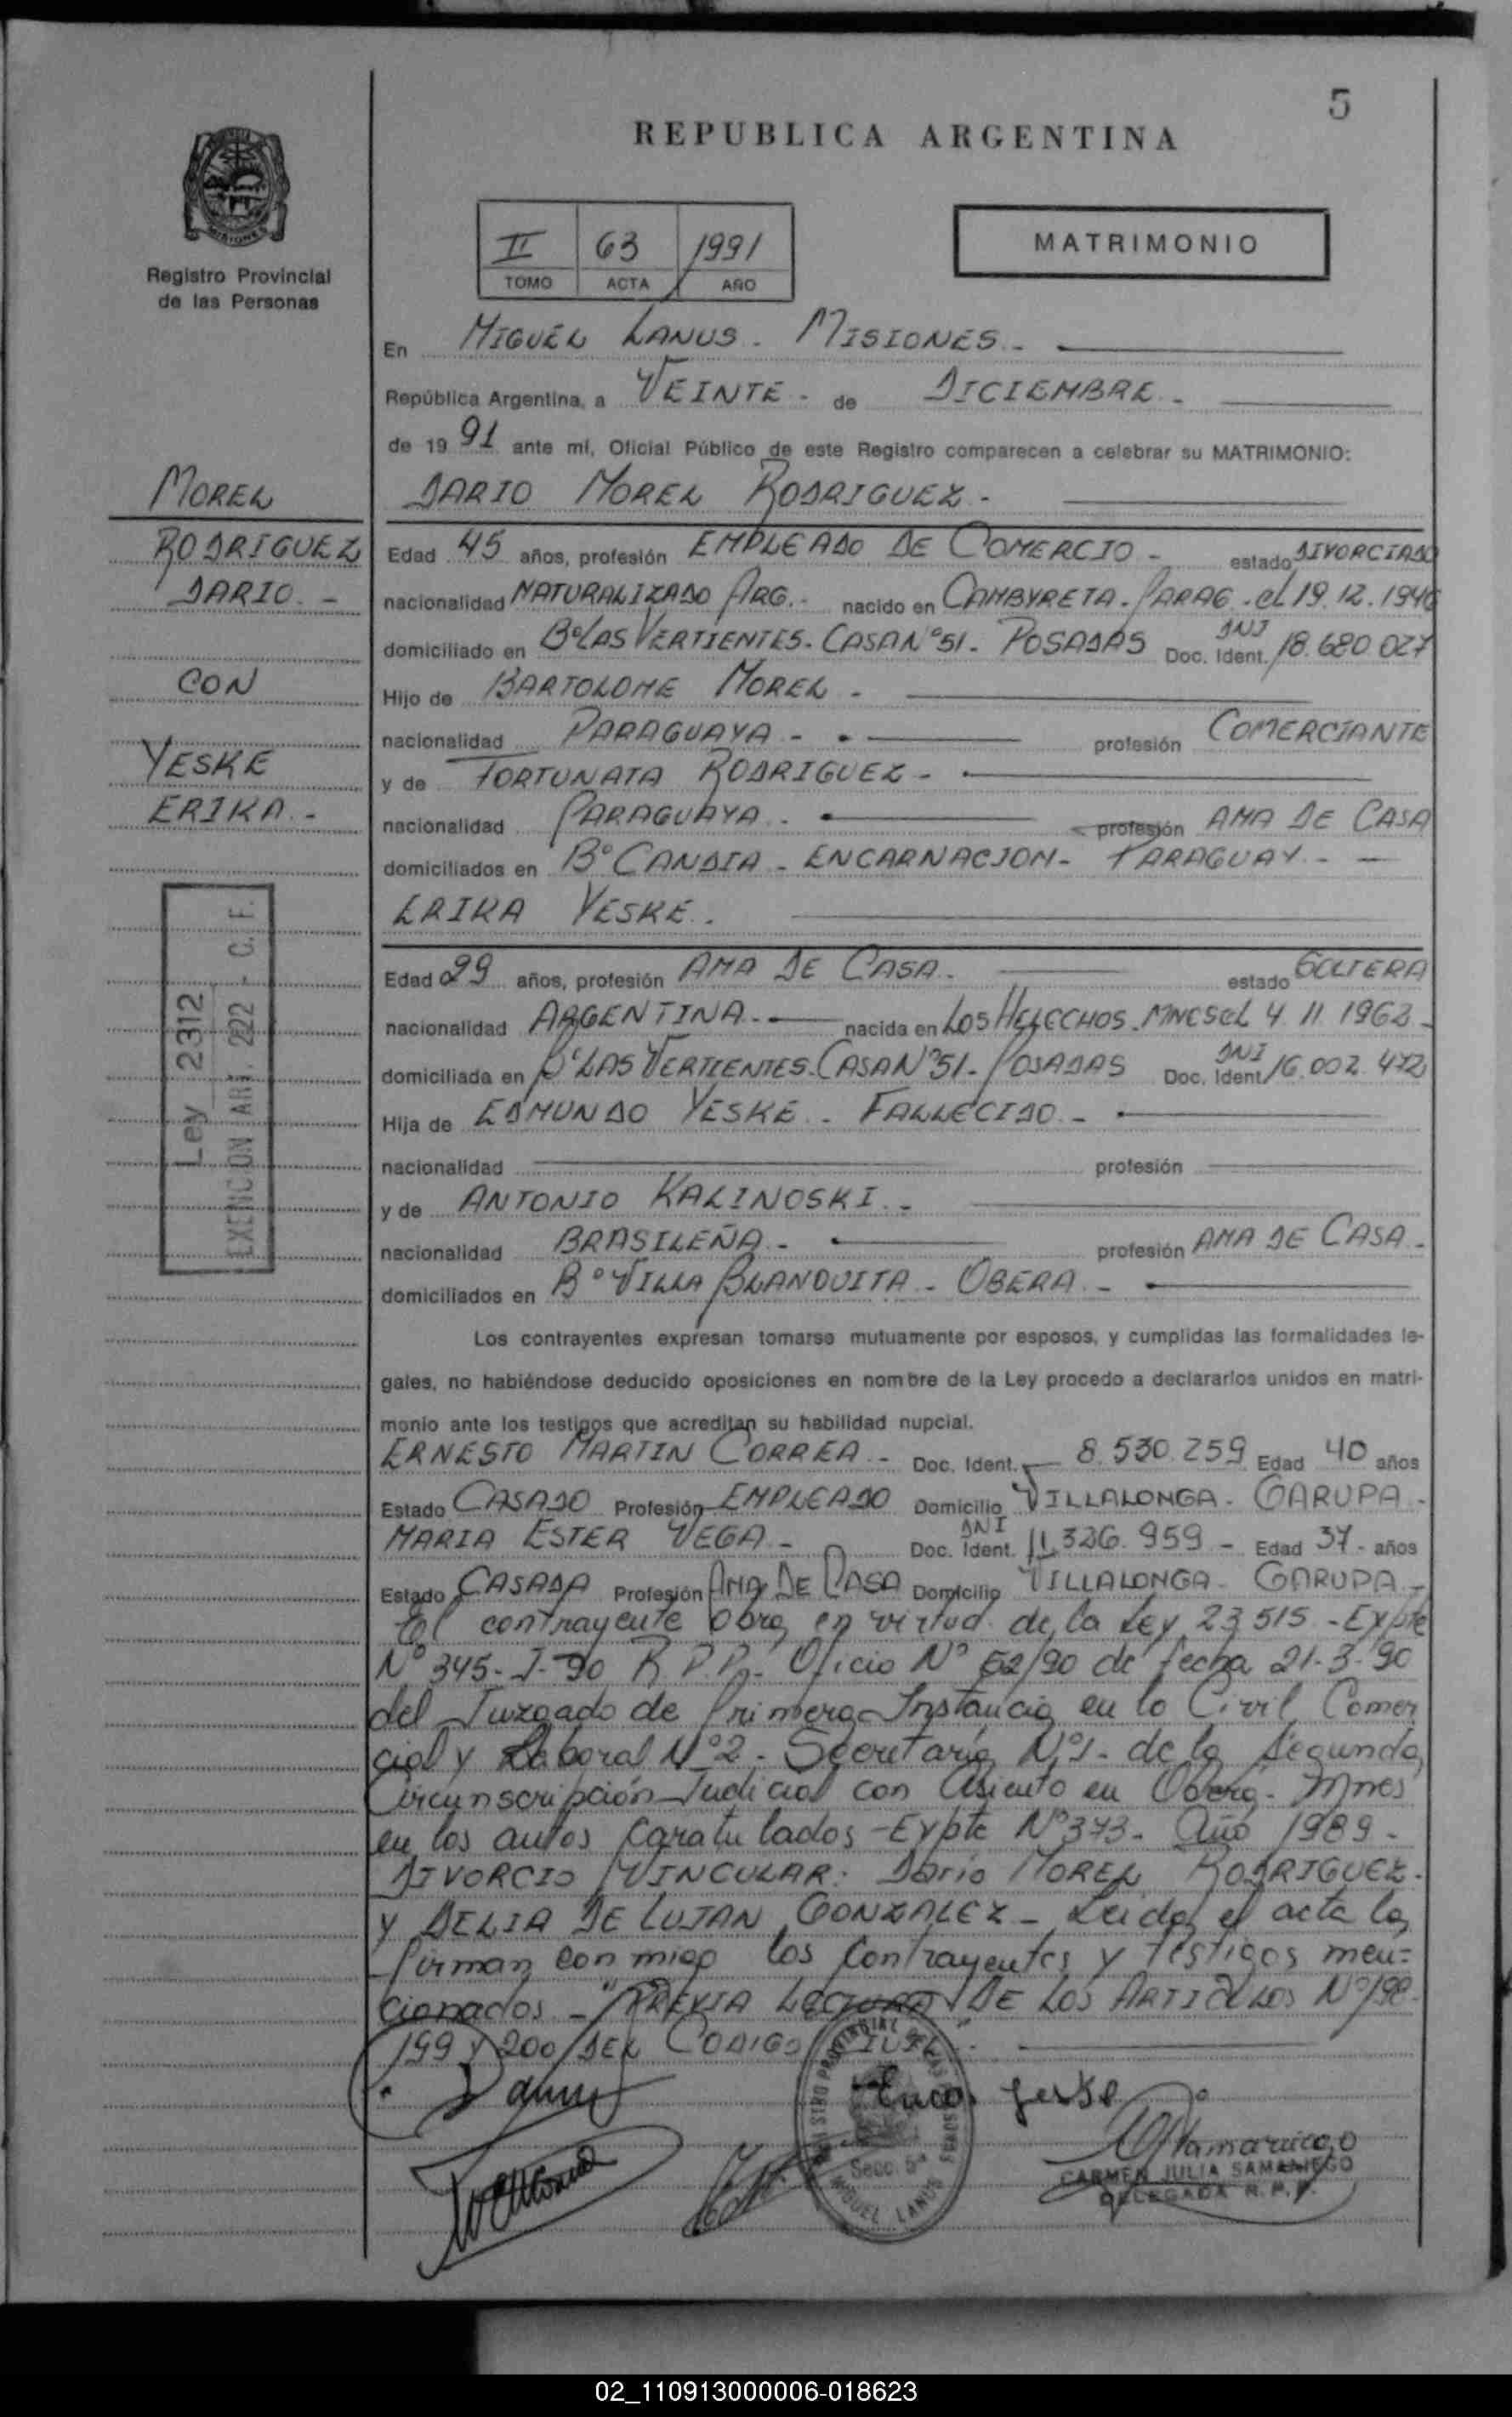 5
REPUBLICA ARGENTINA
MISIONES
Registro Provincial
de las Personas
II 63 1991
TOMO ACTA AÑO
MATRIMONIO
En MIGUEL LANUS - MISIONES -
República Argentina, a VEINTE - de DICIEMBRE -
de 19 91 ante mí, Oficial Público de este Registro comparecen a celebrar su MATRIMONIO:
MOREL
RODRIGUEZ
DARIO. -
CON
YESKE
ERIKA. -
DARIO MOREL RODRIGUEZ -
Edad 45 años, profesión EMPLEADO DE COMERCIO - estado DIVORCIADO
nacionalidad NATURALIZADO ARG. - nacido en CAMBYRETA - PARAG. el 19.12.1946
domiciliado en Bº LAS VERTIENTES - CASA Nº 51 - POSADAS Doc. Ident. DNI 18.680.027
Hijo de BARTOLOME MOREL -
nacionalidad PARAGUAYA - profesión COMERCIANTE
y de FORTUNATA RODRIGUEZ -
nacionalidad PARAGUAYA - profesión AMA DE CASA
domiciliados en Bº CANDIA - ENCARNACION - PARAGUAY - -
ERIKA YESKE.
Edad 29 años, profesión AMA DE CASA - estado SOLTERA
nacionalidad ARGENTINA - nacida en LOS HELECHOS - MNES el 4.11.1962 -
domiciliada en Bº LAS VERTIENTES - CASA Nº 51 - POSADAS Doc. Ident. DNI 16.002.472
Hija de EDMUNDO YESKE - FALLECIDO -
nacionalidad profesión
y de ANTONIO KALINOSKI. -
nacionalidad BRASILEÑA - profesión AMA DE CASA -
domiciliados en Bº VILLA BLANQUITA - OBERA. -
Ley 2312
EXENCION ART. 222 - C. F.
Los contrayentes expresan tomarse mutuamente por esposos, y cumplidas las formalidades le-
gales, no habiéndose deducido oposiciones en nombre de la Ley procedo a declararlos unidos en matri-
monio ante los testigos que acreditan su habilidad nupcial.
ERNESTO MARTIN CORREA - Doc. Ident. 8.530.259 Edad 40 años
Estado CASADO Profesión EMPLEADO Domicilio VILLALONGA - GARUPA -
MARIA ESTER VEGA - Doc. Ident. DNI 11.326.959 - Edad 37 - años
Estado CASADA Profesión AMA DE CASA Domicilio VILLALONGA - GARUPA -
El contrayente obra en virtud de la Ley 23515 - Expte
Nº 345-J-90 R.P.P. - Oficio Nº 62/90 de fecha 21-3-90
del Juzgado de Primera Instancia en lo Civil, Comer
cial y Laboral Nº 2 - Secretaría Nº 1 - de la Segunda
Circunscripción Judicial con Asiento en Oberá - Mnes
en los autos Caratulados - Expte Nº 373 - Año 1989 -
DIVORCIO VINCULAR: Darío MOREL RODRIGUEZ -
y DELIA DE LUJAN GONZALEZ - Leída el acta la
firman conmigo los Contrayentes y testigos men-
cionados - "PREVIA LECTURA DE LOS ARTICULOS Nº 198
199 y 200 DEL CODIGO CIVIL" -
REGISTRO PROVINCIAL DE LAS PERSONAS
Secc. 5ª
MIGUEL LANUS
CARMEN JULIA SAMANIEGO
DELEGADA R. P. P.
02_110913000006-018623